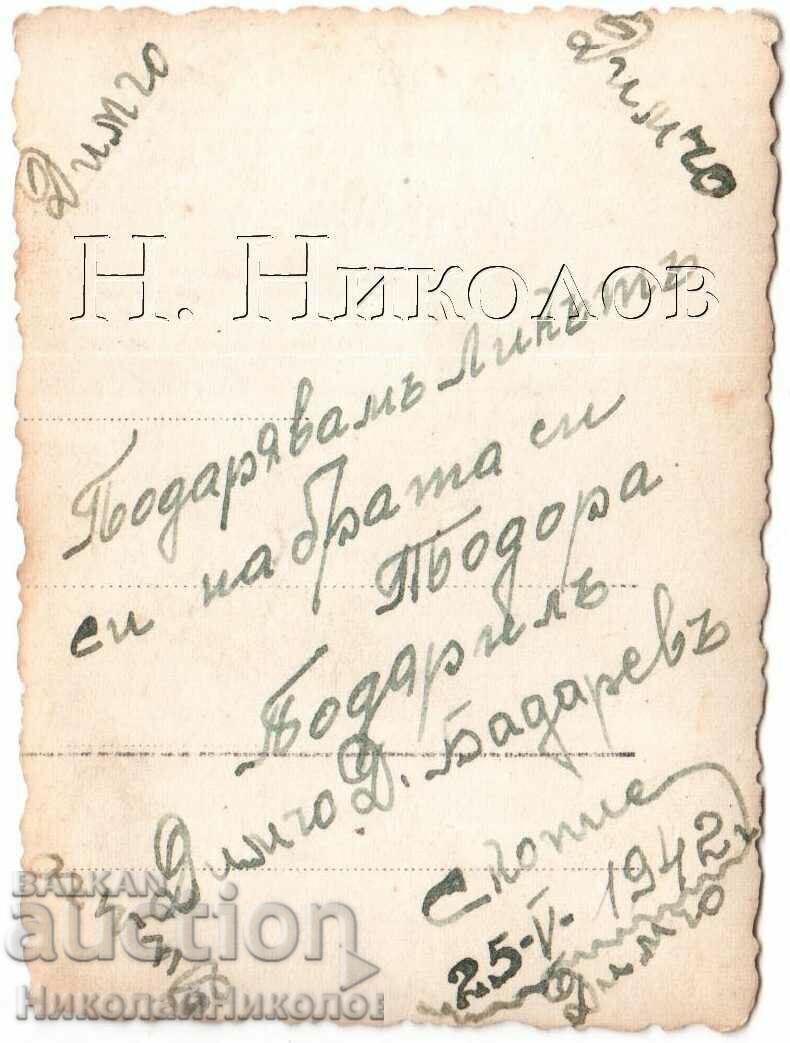 Димчо
Димчо
Н. Николов
Подарявамъ Ликътъ
си на брата си
Тодора
Подарилъ
Димчо Д. Бадаревъ
Скопие
25-V-1942 г.
Димчо
Димчо
BALKAN
auction
НиколайНиколов